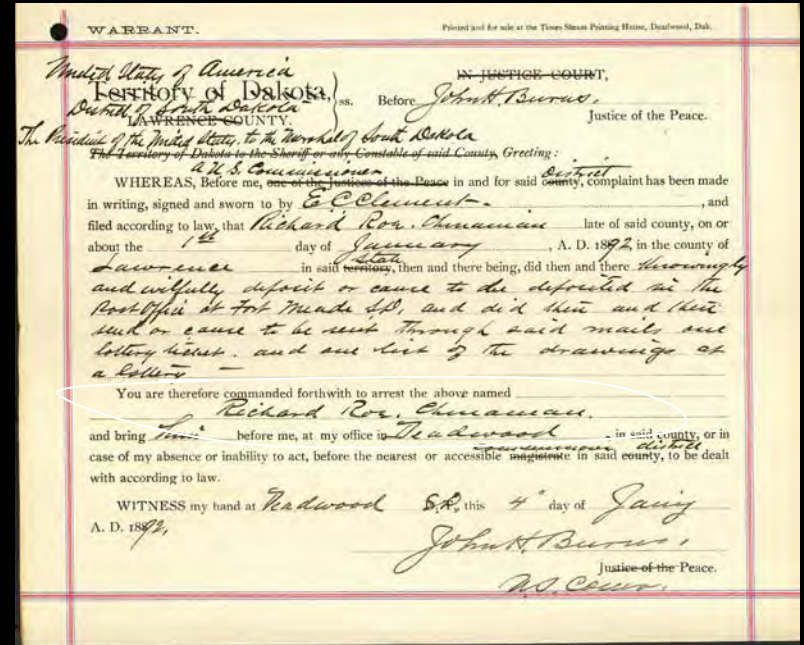 WARRANT.
Printed and for sale at the Times Steam Printing House, Deadwood, Dak.
United States of America
Territory of Dakota,
District of South Dakota
LAWRENCE COUNTY.
ss.
IN JUSTICE COURT,
Before John H. Burns.
Justice of the Peace.
The President of the United States, to the Marshal of South Dakota
The Territory of Dakota to the Sheriff or any Constable of said County, Greeting:
a U.S. Commissioner district
WHEREAS, Before me, one of the Justices of the Peace in and for said county, complaint has been made
in writing, signed and sworn to by E C Clement , and
filed according to law, that Richard Roe. Chinaman late of said county, on or
about the 1st day of January , A. D. 1892, in the county of
state
Lawrence in said territory, then and there being, did then and there knowingly
and wilfully deposit or cause to be deposited in the
Post Office at Fort Meade S.D, and did then and there
send or cause to be sent through said mails one
lottery ticket. and one list of the drawings of
a lottery
You are therefore commanded forthwith to arrest the above named
Richard Roe. Chinaman.
and bring him before me, at my office in Deadwood in said county, or in
commissioner district
case of my absence or inability to act, before the nearest or accessible magistrate in said county, to be dealt
with according to law.
WITNESS my hand at Deadwood S.D., this 4" day of
A. D. 1892,
John H. Burns.
Justice of the Peace.
U.S. Comr.